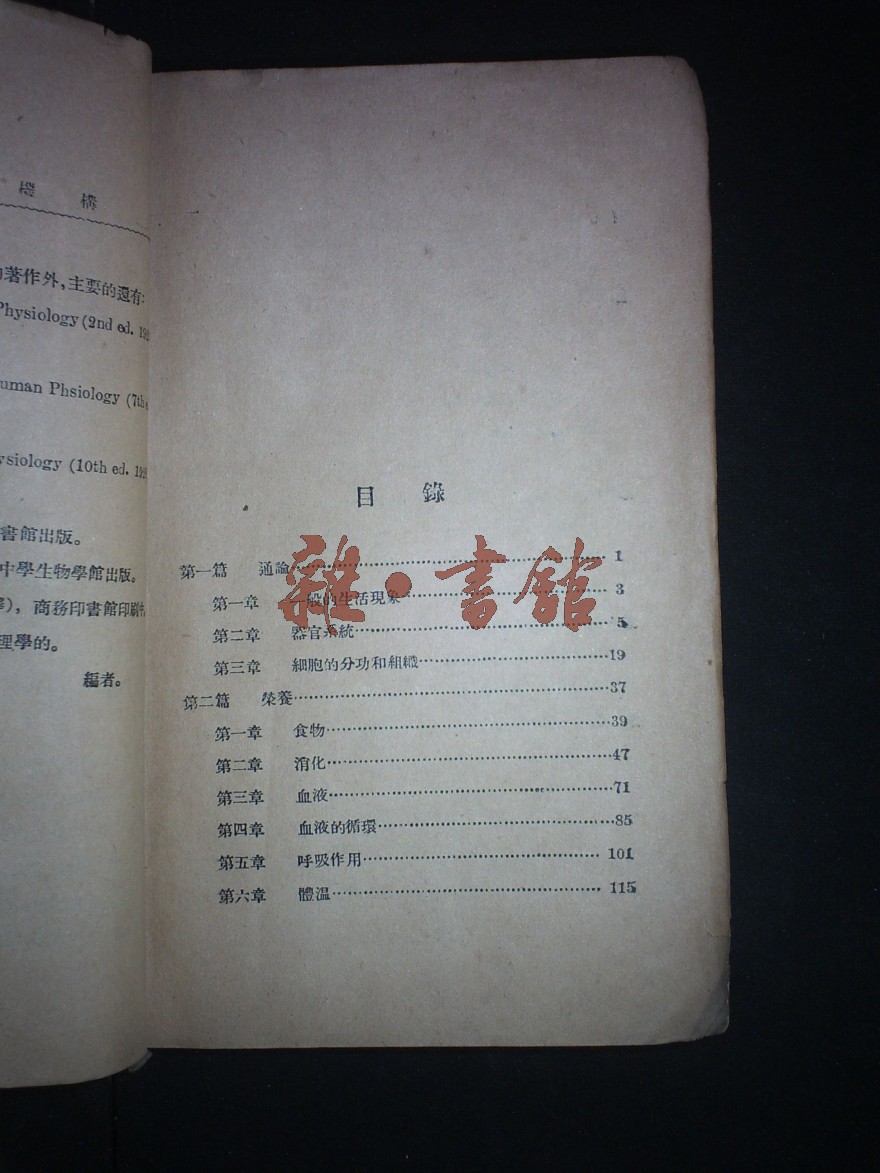 機 構
著作外,主要的還有:
Physiology (2nd ed.
uman Phsiology (7th
ysiology (10th ed.
書館出版。
中學生物學館出版。
商務印書館印刷中,
理學的。
編者。
目 錄
第一篇 通論 1
第一章 一般的生活現象 3
第二章 器官系統 5
第三章 細胞的分功和組織 19
第二篇 榮養 37
第一章 食物 39
第二章 消化 47
第三章 血液 71
第四章 血液的循環 85
第五章 呼吸作用 101
第六章 體溫 115
雜·書館